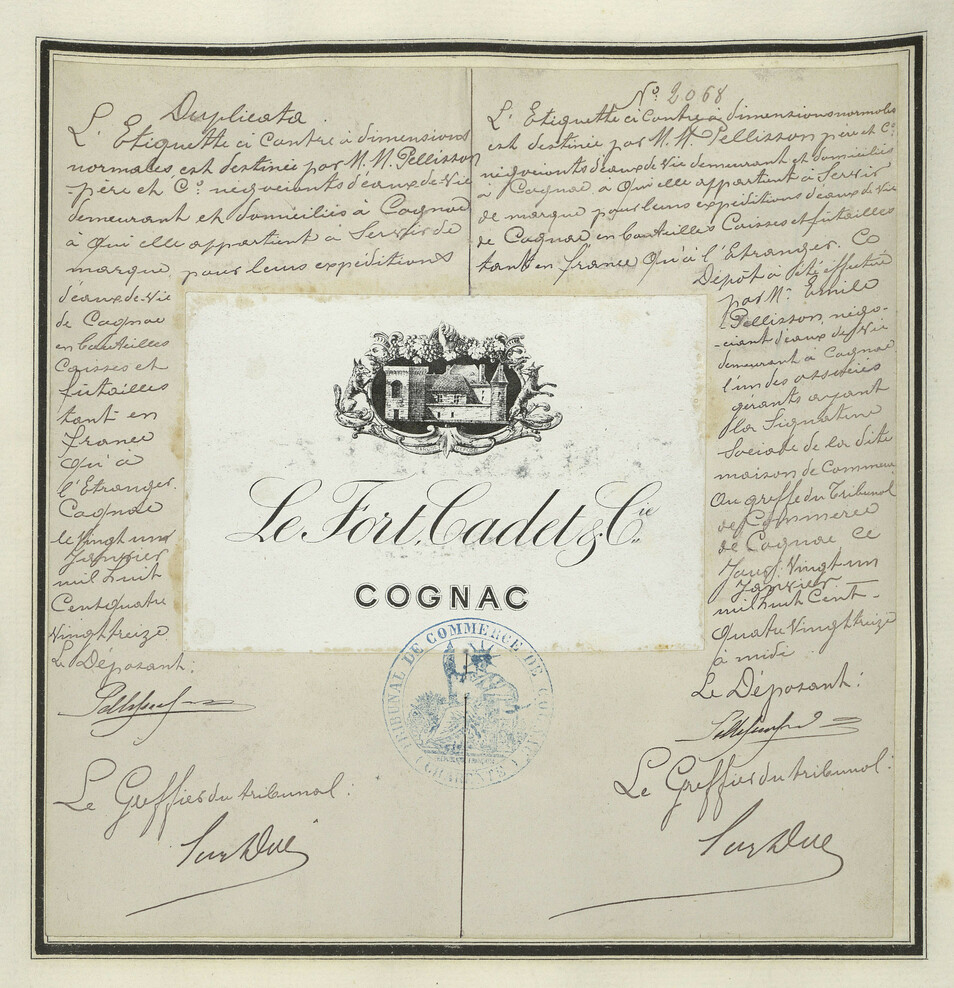 Duplicata
L'Etiquette ci Contre à dimensions
normales est destinée par M. M. Pellisson
père et Cº négociants d'eaux-de-Vie
demeurant et domiciliés à Cognac
à Qui elle appartient à Servir de
marque pour leurs expéditions
d'eaux-de-Vie
de Cognac
en bouteilles
Caisses et
futailles
tant en
france
Qu'à
l'Etranger.
Cognac
le Vingt un
Janvier
mil huit
Cent quatre
Vingt treize
Le Déposant:
Le Greffier du tribunal:
Nº 2068
L'Etiquette ci Contre à dimensions normales
est destinée par M. M. Pellisson père et Cº
négociants d'eaux de Vie demeurant et domiciliés
à Cognac, à Qui elle appartient à Servir
de marque pour leurs expéditions d'eaux de Vie
de Cognac en bouteilles Caisses et futailles
tant en france Qu'à l'Etranger. Ce
Dépôt a été effectué
par Mr. Emile
Pellisson, négo-
-ciant d'eaux de Vie
demeurant à Cognac
l'un des associés
gérants ayant
la Signature
Sociale de la dite
maison de Commerce
Au greffe du Tribunal
de Commerce
de Cognac ce
Jourd. Vingt un
Janvier
mil huit Cent-
Quatre Vingt treize
à midi
Le Déposant:
Le Greffier du tribunal:
Le Fort, Cadet & Cie
COGNAC
TRIBUNAL DE COMMERCE DE COGNAC
(CHARENTE)